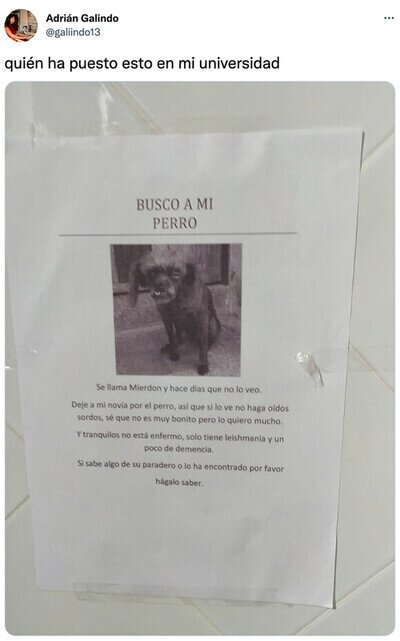 Adrián Galindo
@galiindo13
quién ha puesto esto en mi universidad
BUSCO A MI
PERRO
Se llama Mierdon y hace días que no lo veo.
Deje a mi novia por el perro, así que si lo ve no haga oídos
sordos, sé que no es muy bonito pero lo quiero mucho.
Y tranquilos no está enfermo, solo tiene leishmania y un
poco de demencia.
Si sabe algo de su paradero o lo ha encontrado por favor
hágalo saber.